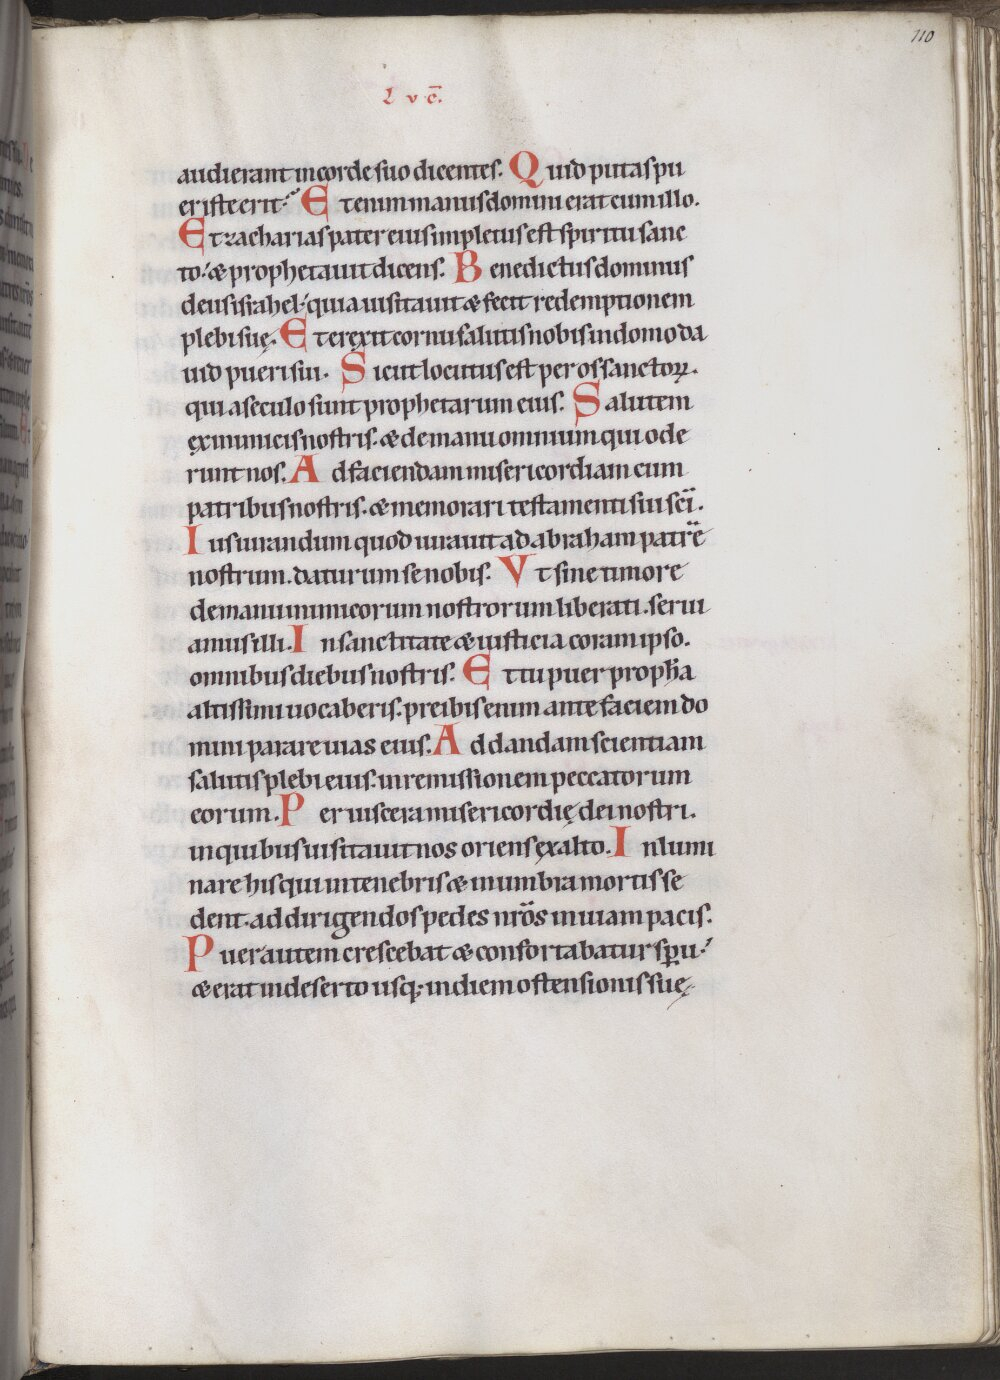 110
Luc̄.
audierant in corde suo dicentes. Quid putas pu
er iste erit? Etenim manus domini erat cum illo.
Et zacharias pater eius impletus est spiritu sanc
to: & prophetauit dicens. Benedictus dominus
deus israhel: quia uisitauit & fecit redemptionem
plebi suę. Et erexit cornu salutis nobis in domo da
uid pueri sui. Sicut locutus est per os sanctoꝝ.
qui a seculo sunt prophetarum eius. Salutem
ex inimicis nostris. & de manu omnium qui ode
runt nos. Ad faciendam misericordiam cum
patribus nostris. & memorari testamenti sui sc̄i.
Iusiurandum quod iurauit ad abraham patrē
nostrum. daturum se nobis. Vt sine timore
de manu inimicorum nostrorum liberati. serui
amus illi. In sanctitate & iusticia coram ipso.
omnibus diebus nostris. Et tu puer proph̄a
altissimi uocaberis. preibis enim ante faciem do
mini parare uias eius. Ad dandam scientiam
salutis plebi eius. in remissionem peccatorum
eorum. Per uiscera misericordię dei nostri.
in quibus uisitauit nos oriens ex alto. Inlumi
nare his qui in tenebris & in umbra mortis se
dent. ad dirigendos pedes nr̄os in uiam pacis.
Puer autem crescebat & confortabatur sp̄u:
& erat in deserto usq; in diem ostensionis suę.